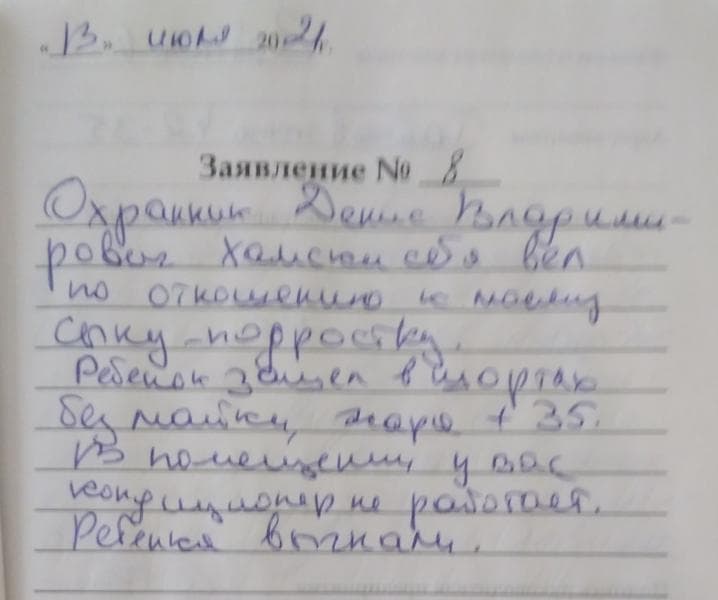 «13» июля 2021г.
Заявление № 8
Охранник Денис Владими-
рович хамски себя вел
по отношению к моему
сыну-подростку.
Ребенок зашел в шортах
без майки, жара +35.
В помещении у вас
кондиционер не работает.
Ребенка выгнали.